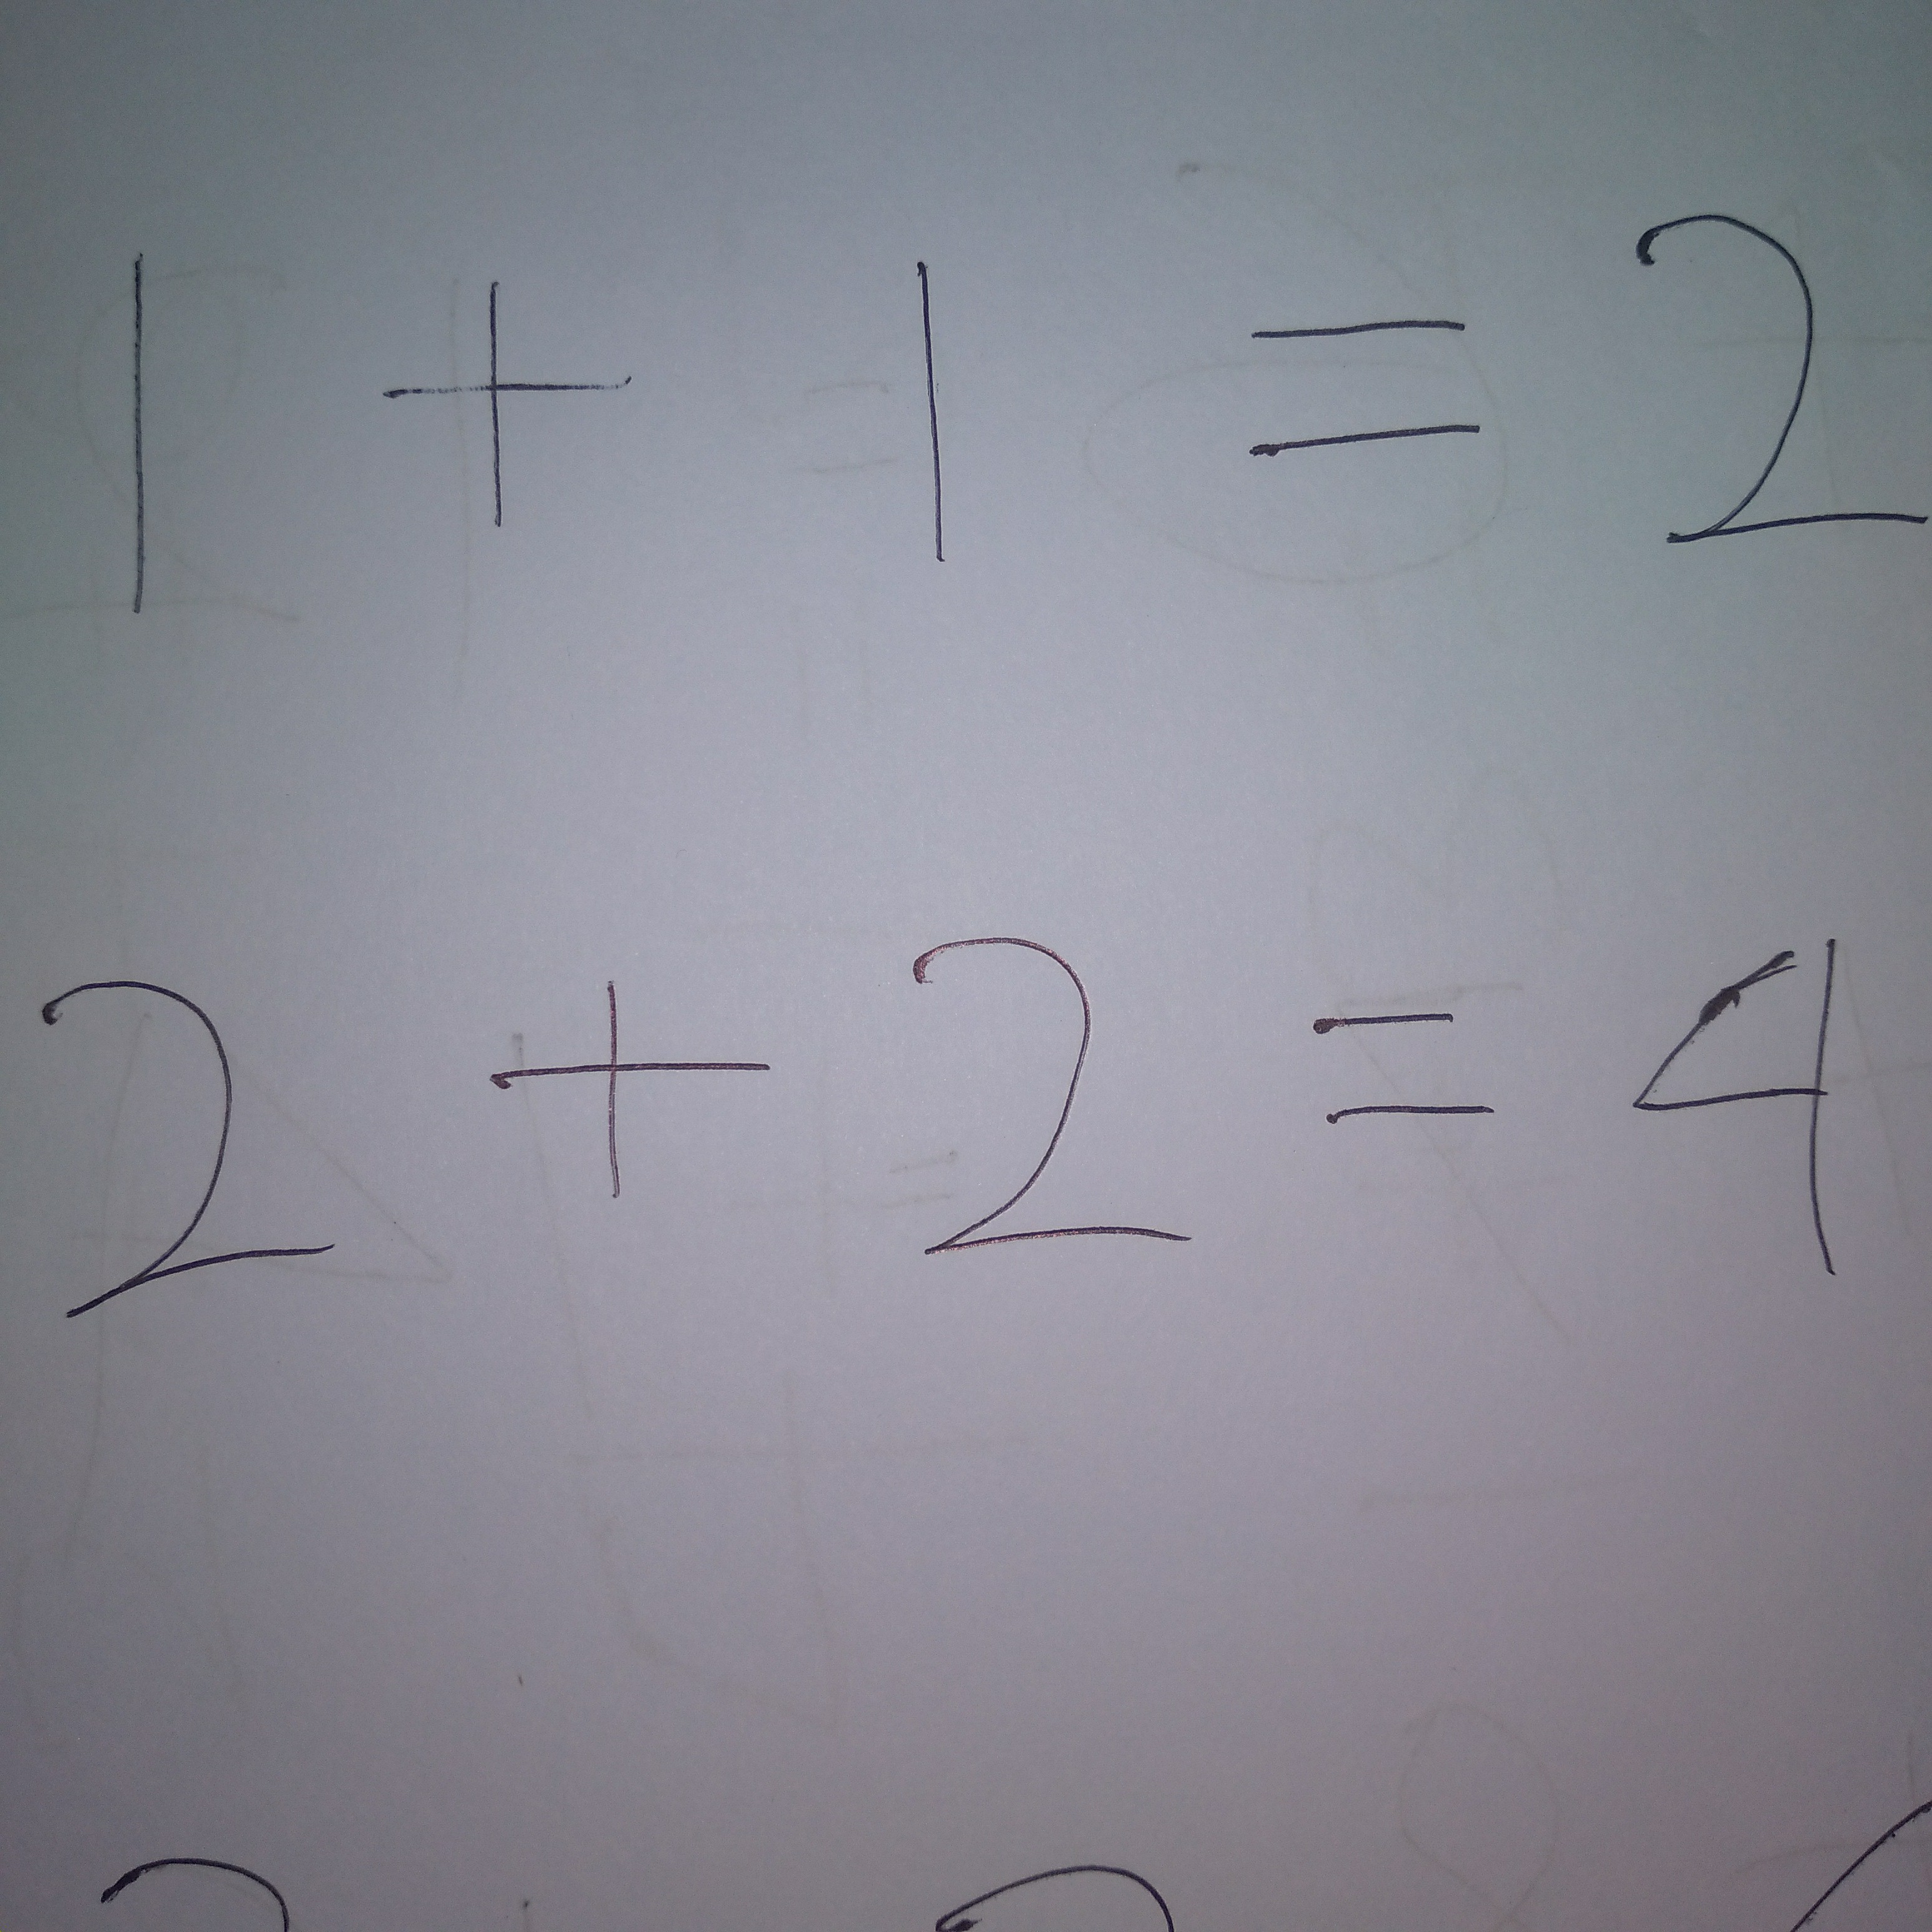 1 + 1 = 2
2 + 2 = 4